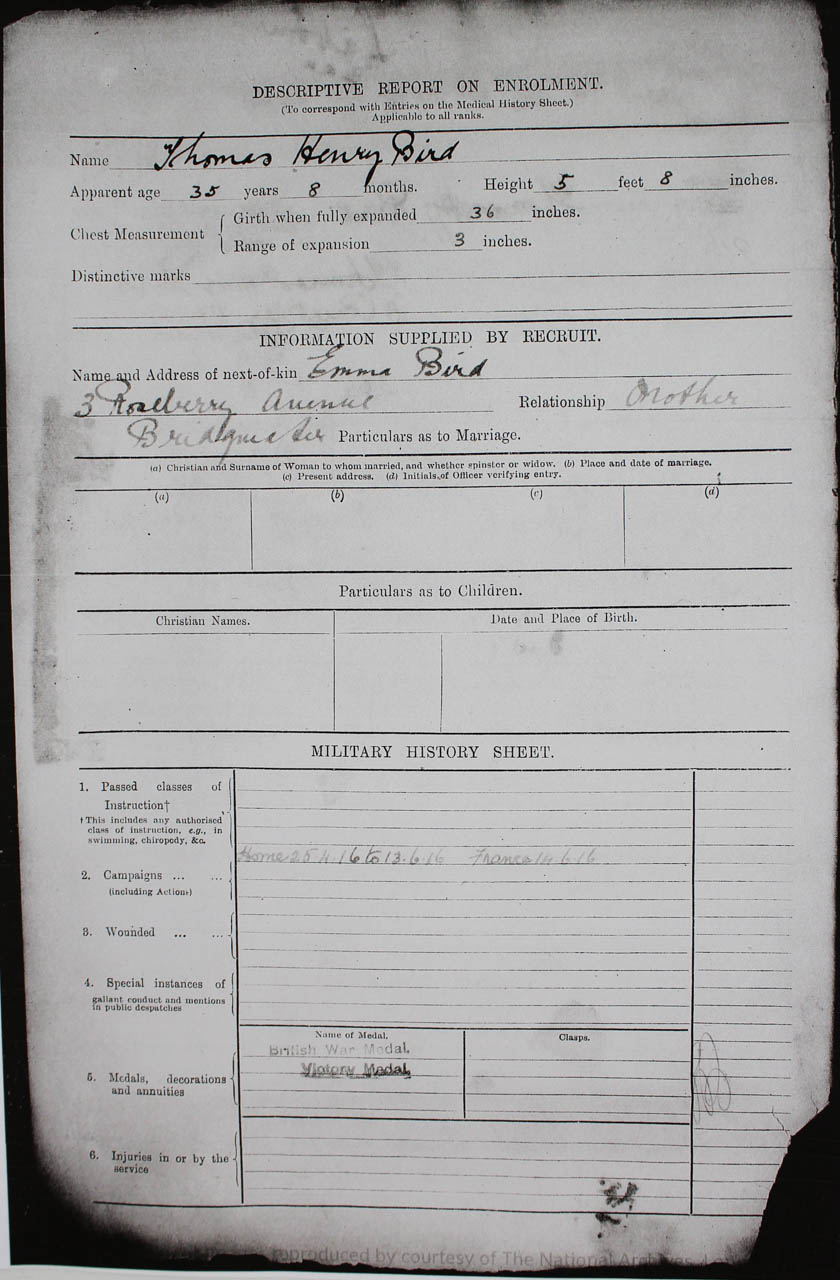 DESCRIPTIVE REPORT ON ENROLMENT.
(To correspond with Entries on the Medical History Sheet.)
Applicable to all ranks.
Name Thomas Henry Bird
Apparent age 35 years 8 months. Height 5 feet 8 inches.
Chest Measurement { Girth when fully expanded 36 inches.
Range of expansion 3 inches.
Distinctive marks
INFORMATION SUPPLIED BY RECRUIT.
Name and Address of next-of-kin Emma Bird
3 Roseberry Avenue Relationship Mother
Bridgwater Particulars as to Marriage.
(a) Christian and Surname of Woman to whom married, and whether spinster or widow. (b) Place and date of marriage.
(c) Present address. (d) Initials of Officer verifying entry.
(a) (b) (c) (d)
Particulars as to Children.
Christian Names. Date and Place of Birth.
MILITARY HISTORY SHEET.
1. Passed classes of
Instruction†
†This includes any authorised
class of instruction, e.g., in
swimming, chiropody, &c.
Home 25.4.16 to 13.6.16 France 14.6.16
2. Campaigns ... ...
(including Actions)
3. Wounded ... ...
4. Special instances of
gallant conduct and mentions
in public despatches
Name of Medal. Clasps.
British War Medal.
Victory Medal.
5. Medals, decorations
and annuities
6. Injuries in or by the
service
reproduced by courtesy of The National Archives